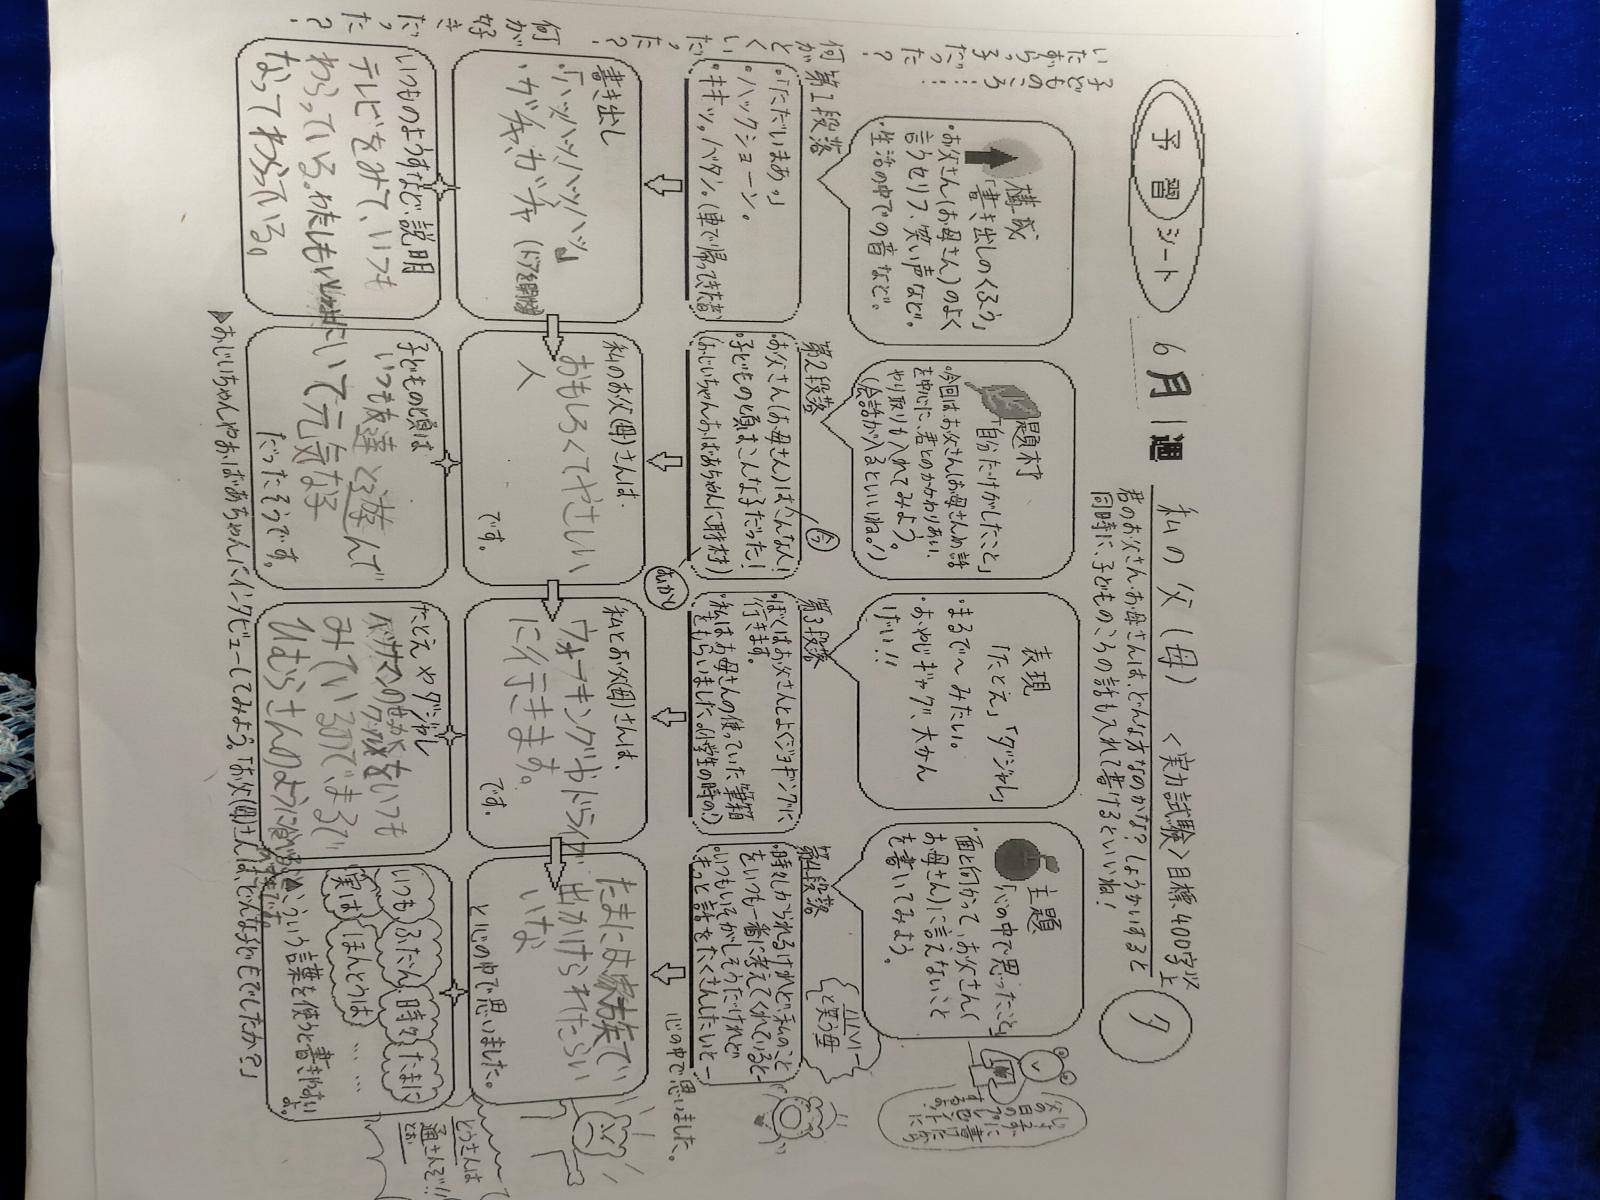 予習シート
6月1週
私の父(母)
<実力試験>目標400字以上
ク
君のお父さん、お母さんは、どんな方なのかな?しょうかいすると
同時に、子どものころの話も入れて書けるといいね!
構成
「書き出しのくふう」
・お父さん(お母さん)のよく
言うセリフ、笑い声など。
・生活の中での音など。
題材
「自分だけがしたこと」
・今回は、お父さんしお母さんの話
を中心に、君とのかかわりあい、
やり取りも入れてみよう。
(会話が入るといいね。!)
表現
「たとえ」「ダジャレ」
・まるで〜みたい。
・おやじギャグ、大かん
げい!!
主題
「心の中で思ったこと」
・面と向かって、お父さん(
お母さん)に言えないこと
を書いてみよう。
子どものころ……
いたずらっ子だった?
何がとくいだった?
何が好きだった?
第1段落
・「ただいまあっ」
・ハックショーン。
・キキッ。バタン。(車で帰ってきた音)
第2段落
・お父さん(お母さん)はこんな人!
・子どもの頃はこんな子だった!
(おじいちゃんおばあちゃんに取材)
今
むかし
第3段落
・ぼくはお父さんとよくジョギングに
行きます。
・私はお母さんの使っていた筆箱
をもらいました。(小学生の時の)
第4段落
・時々しかられるけれど、私のこと
をいつも一番に考えてくれていると…
・いつもいそがしそうだけれど
きっと話をたくさんしたいと…
心の中で思いました。
ハハハハー
と笑う母
書き出し
・「ハッハッハッハッハッ」
・ガチャ、ガチャ
私のお父(母)さんは、
おもしろくてやさしい
人
です。
私とお父(母)さんは、
ウォーキングやドライブ
に行きます。
です。
たまには家族で
出かけられたらい
いな
と心の中で思いました。
いつものようすなど、説明
テレビをみて、いつも
わらっている。わたしもいっしょに
なってわらっている。
子どもの頃は
いつも友達と遊んで
いて元気な子
だったそうです。
たとえやダジャレ
いつもふだん、時々たまに
実は
ほんとうは
……
▲こういう言葉を使うと書きやすい
よ。
▶おじいちゃんやおばあちゃんにインタビューしてみよう。「お父(母)さんは、どんな子どもでしたか?」
とうさんは